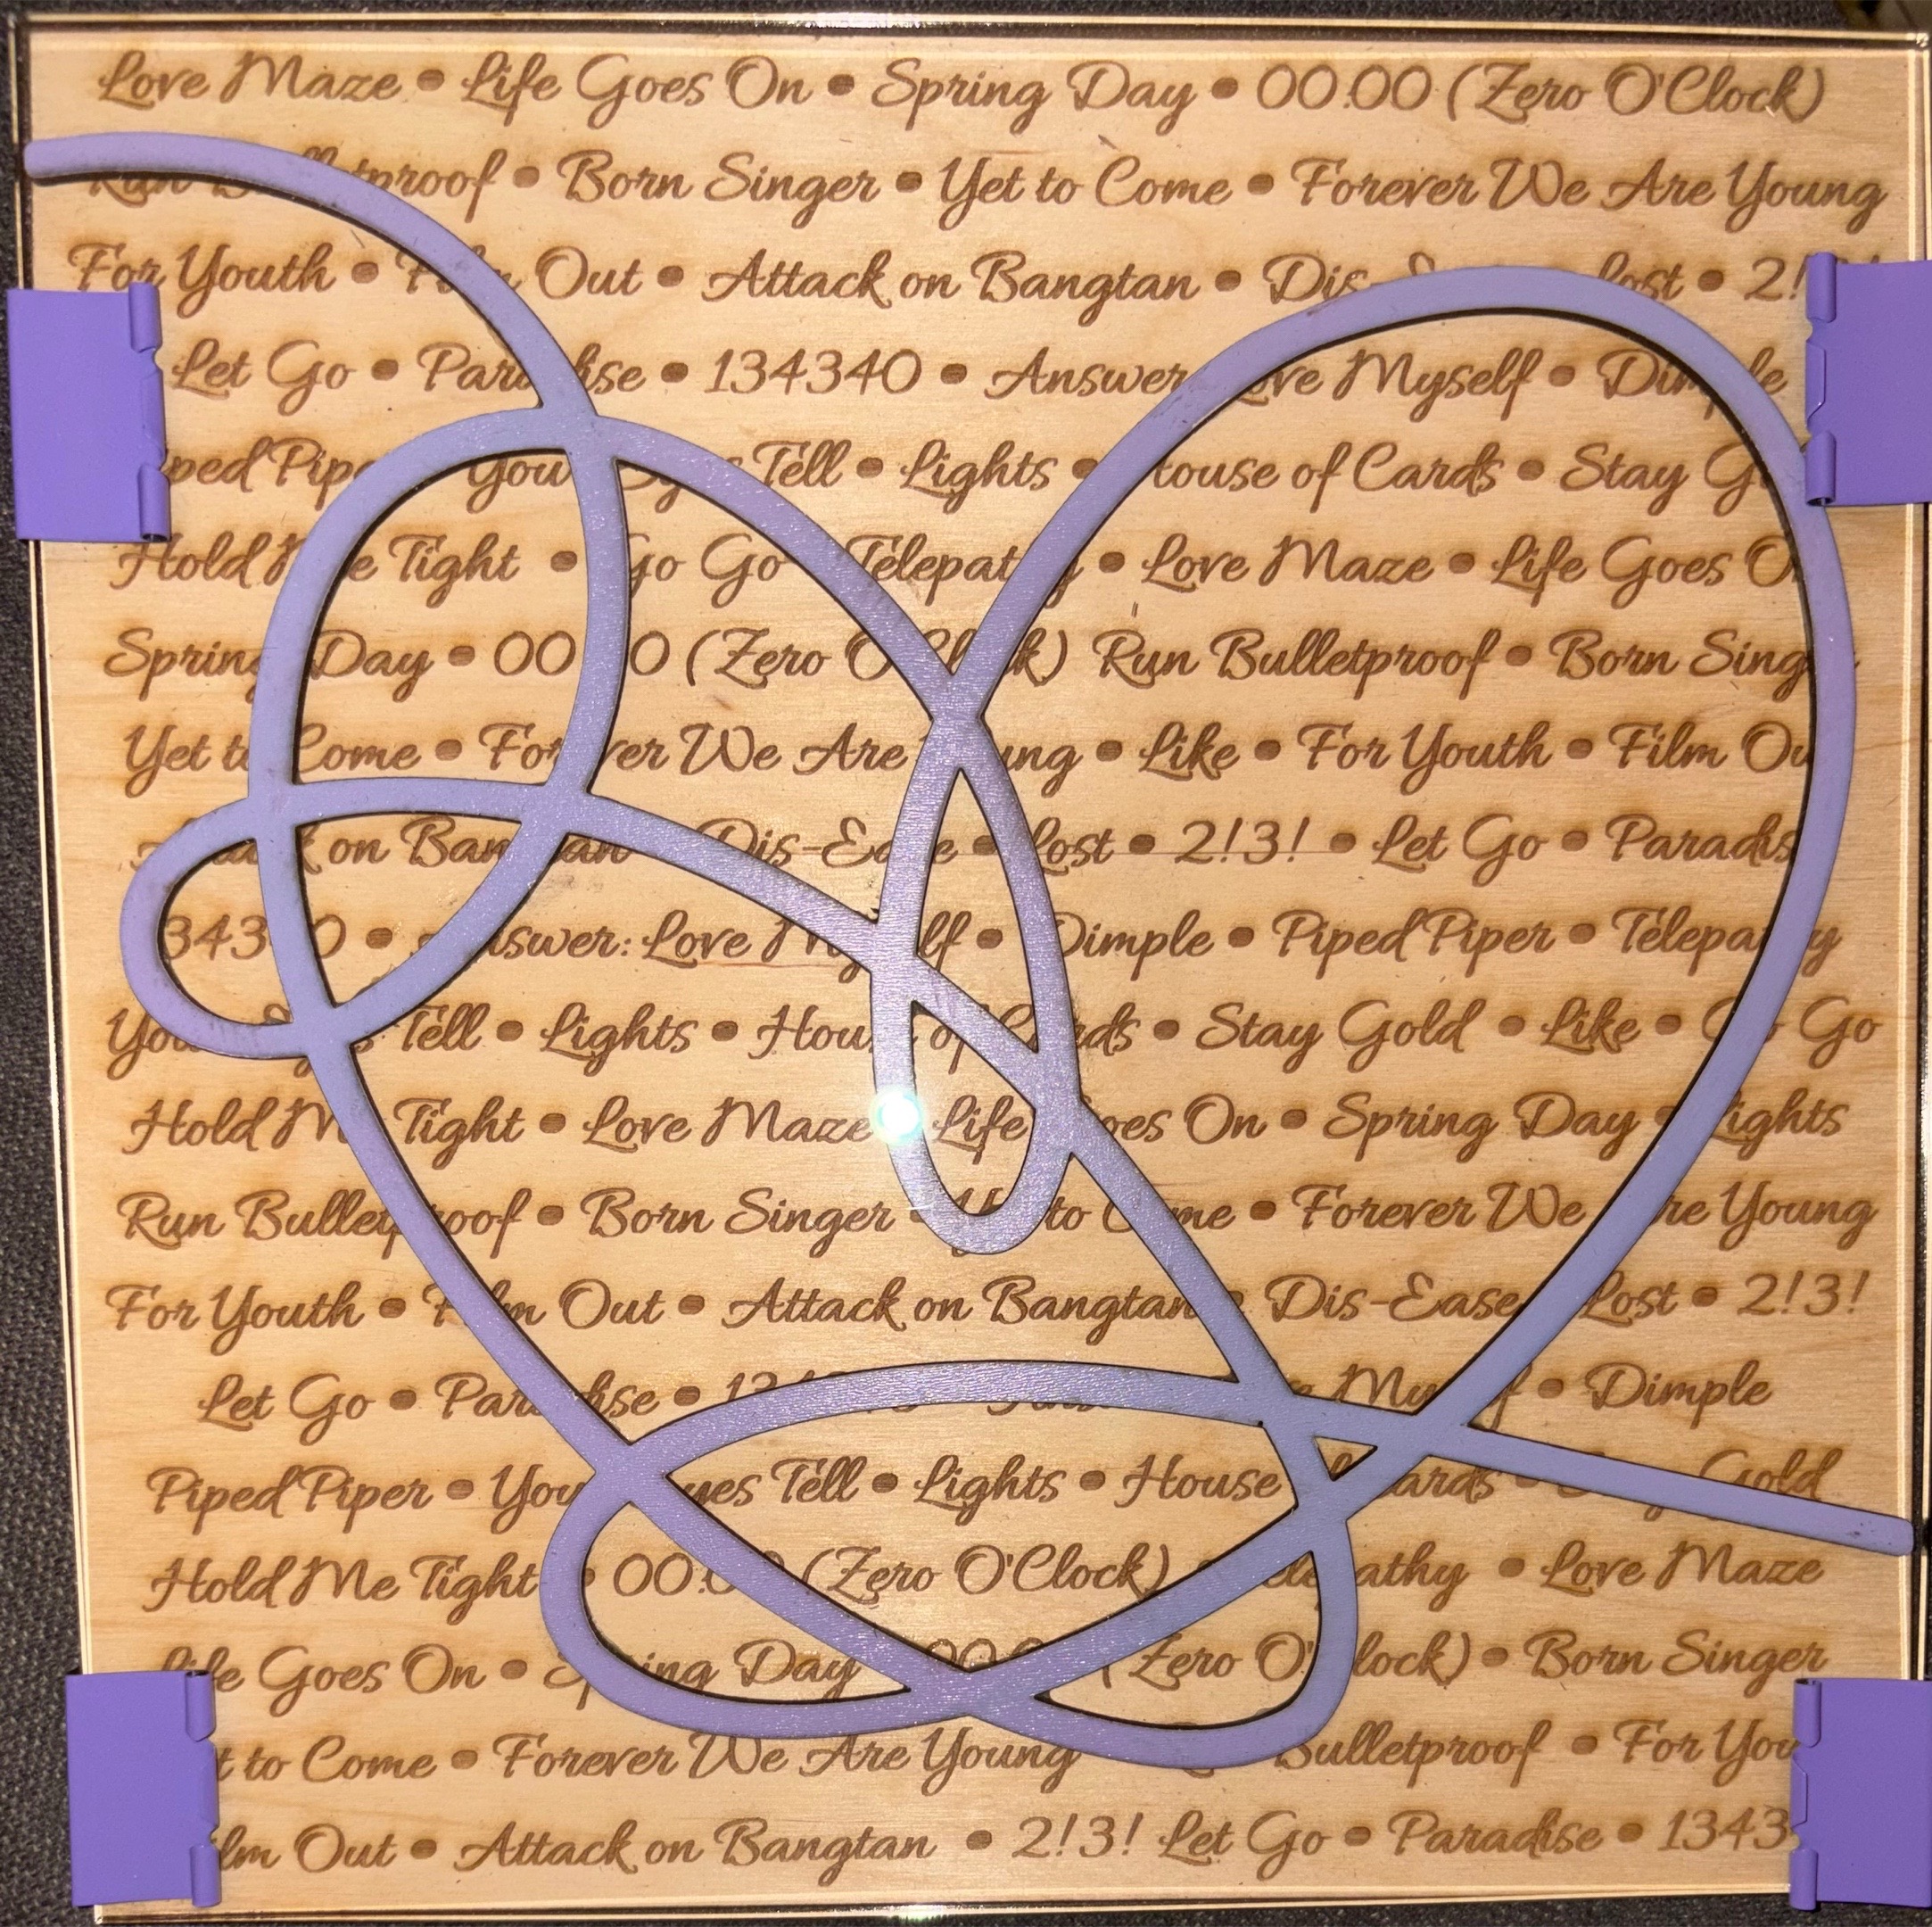 Love Maze • Life Goes On • Spring Day • 00:00 (Zero O'Clock)
Run Bulletproof • Born Singer • Yet to Come • Forever We Are Young
For Youth • Film Out • Attack on Bangtan • Dis-Ease Lost • 2!
Let Go • Paradise • 134340 • Answer Love Myself • Dimple
Tell • Lights • House of Cards • Stay
Hold Me Tight • Go Go Telepathy • Love Maze • Life Goes On
Spring Day • 00:00 (Zero O'Clock) Run Bulletproof • Born
Yet to Come • Forever We Are Young • Like • For Youth • Film Out
on Bangtan Dis-Ease • Lost • 2!3! • Let Go • Paradise
134340 • Answer: Love Myself • Dimple • Piped Piper • Telepathy
Tell • Lights • House of Cards • Stay Gold • Like • Go Go
Hold Me Tight • Love Maze Life Goes On • Spring Day • Lights
Run Bulletproof • Born Singer • Yet to Come • Forever We Are Young
For Youth • Film Out • Attack on Bangtan • Dis-Ease Lost • 2!3!
Let Go • Paradise • Myself • Dimple
Piped Piper • Your Eyes Tell • Lights • House Cards • Gold
Hold Me Tight • 00:00 (Zero O'Clock) Telepathy • Love Maze
Life Goes On • Spring Day (Zero O'Clock) • Born Singer
to Come • Forever We Are Young Bulletproof • For
Film Out • Attack on Bangtan • 2!3! Let Go • Paradise • 1343